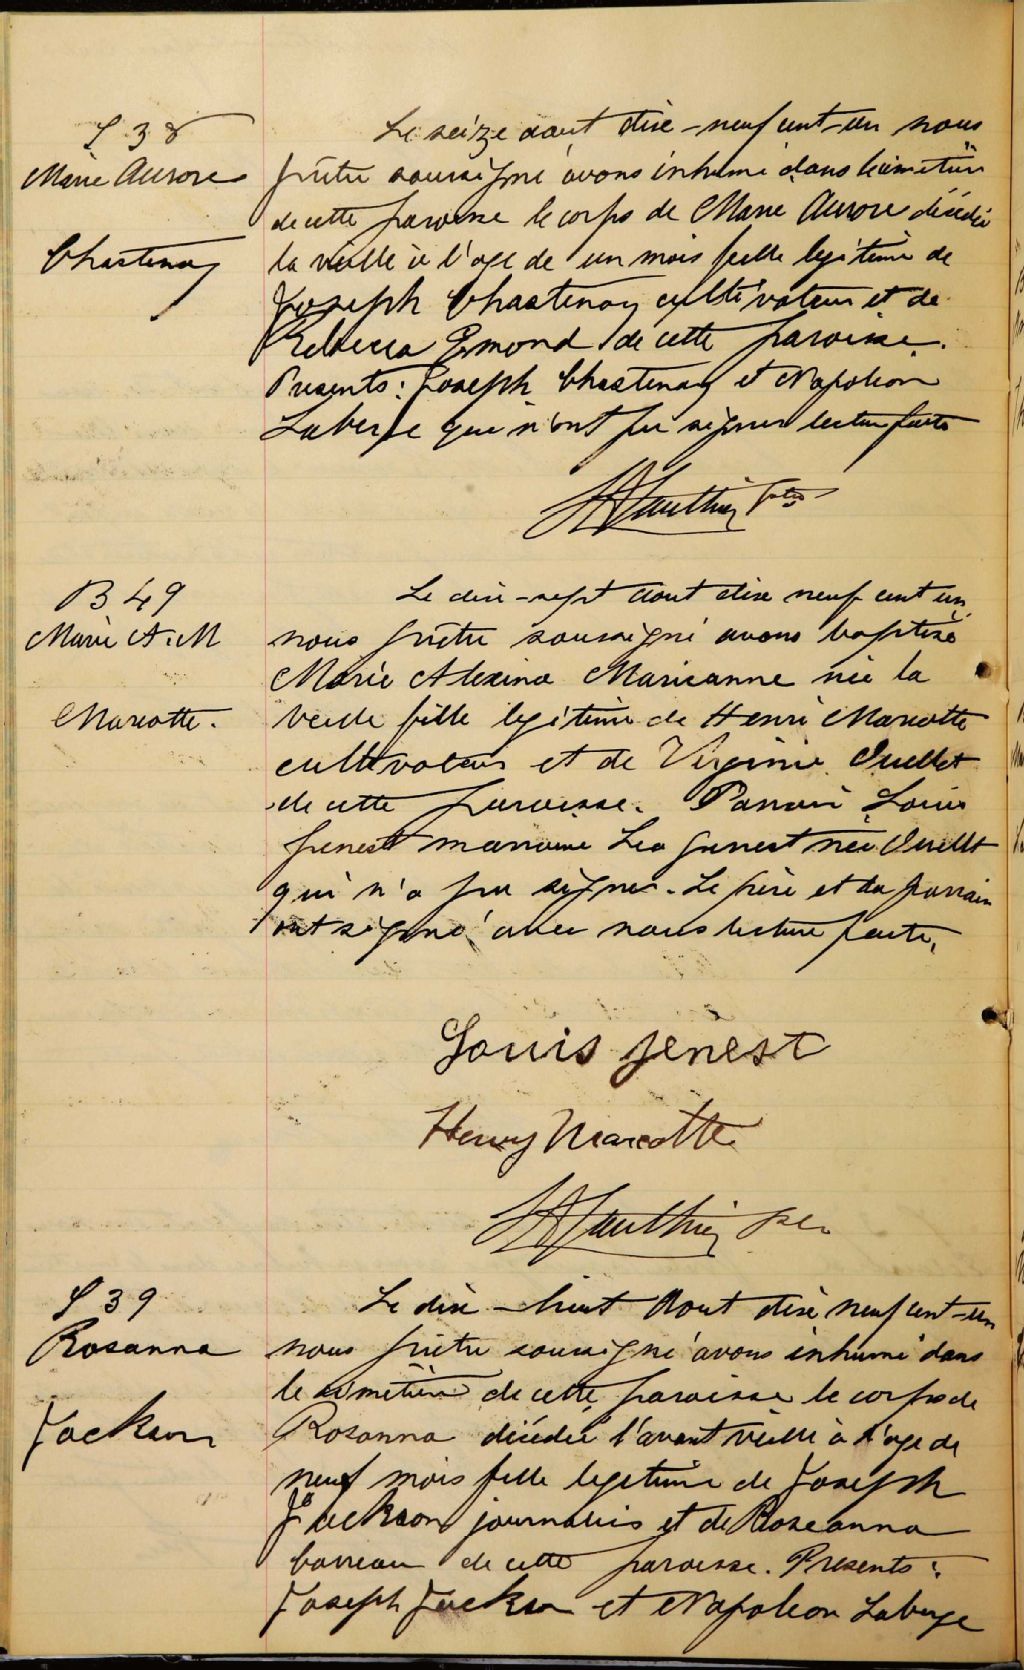 S 38
Marie Aurore
Chastenay
Le seize aout dixe-neuf cent-un nous
prêtre soussigné avons inhumé dans le cimetière
de cette paroisse le corps de Marie Aurore décédée
la veille à l'age de un mois fille legitime de
Joseph Chastenay cultivateur et de
Rebecca Emond de cette paroisse.
Presents: Joseph Chastenay et Napoleon
Laberge qui n'ont pu signer lecture faite
Gauthier ptre
B 49
Marie A. M
Marcotte.
Le dix-sept aout dixe neuf cent un
nous prêtre soussigné avons baptisé
Marie Alexina Marieanne née la
veille fille legitime de Henri Marcotte
cultivateur et de Virginie Ouellet
de cette paroisse. Parrain Louis
Jenest marraine Lea Jenest née Ouellet
qui n'a pu signer. Le père et le parrain
ont signé avec nous lecture faite.
Louis Jenest
Henry Marcotte
Gauthier ptre
S 39
Rosanna
Jackson
Le dixe-huit Aout dixe neuf cent-un
nous prêtre soussigné avons inhumé dans
le cimetière de cette paroisse le corps de
Rosanna décédée l'avant veille à l'age de
neuf mois fille legitime de Joseph
Jackson journalier et de Roseanna
barreau de cette paroisse. Presents:
Joseph Jackson et Napoleon Laberge